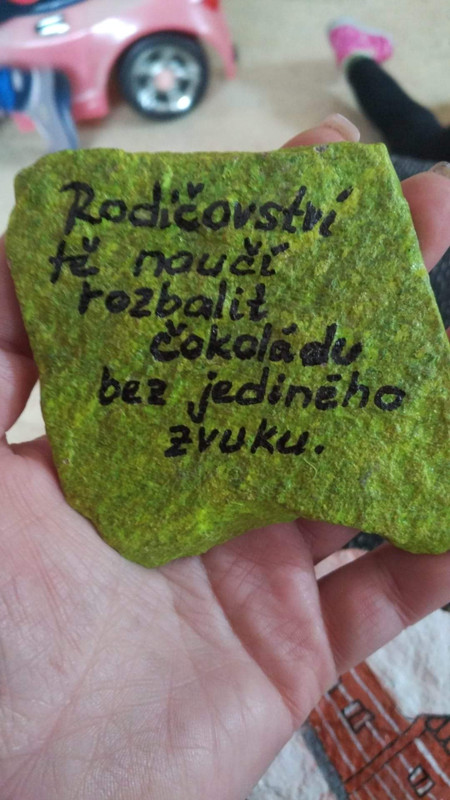 Rodičovství
tě naučí
rozbalit
čokoládu
bez jediného
zvuku.